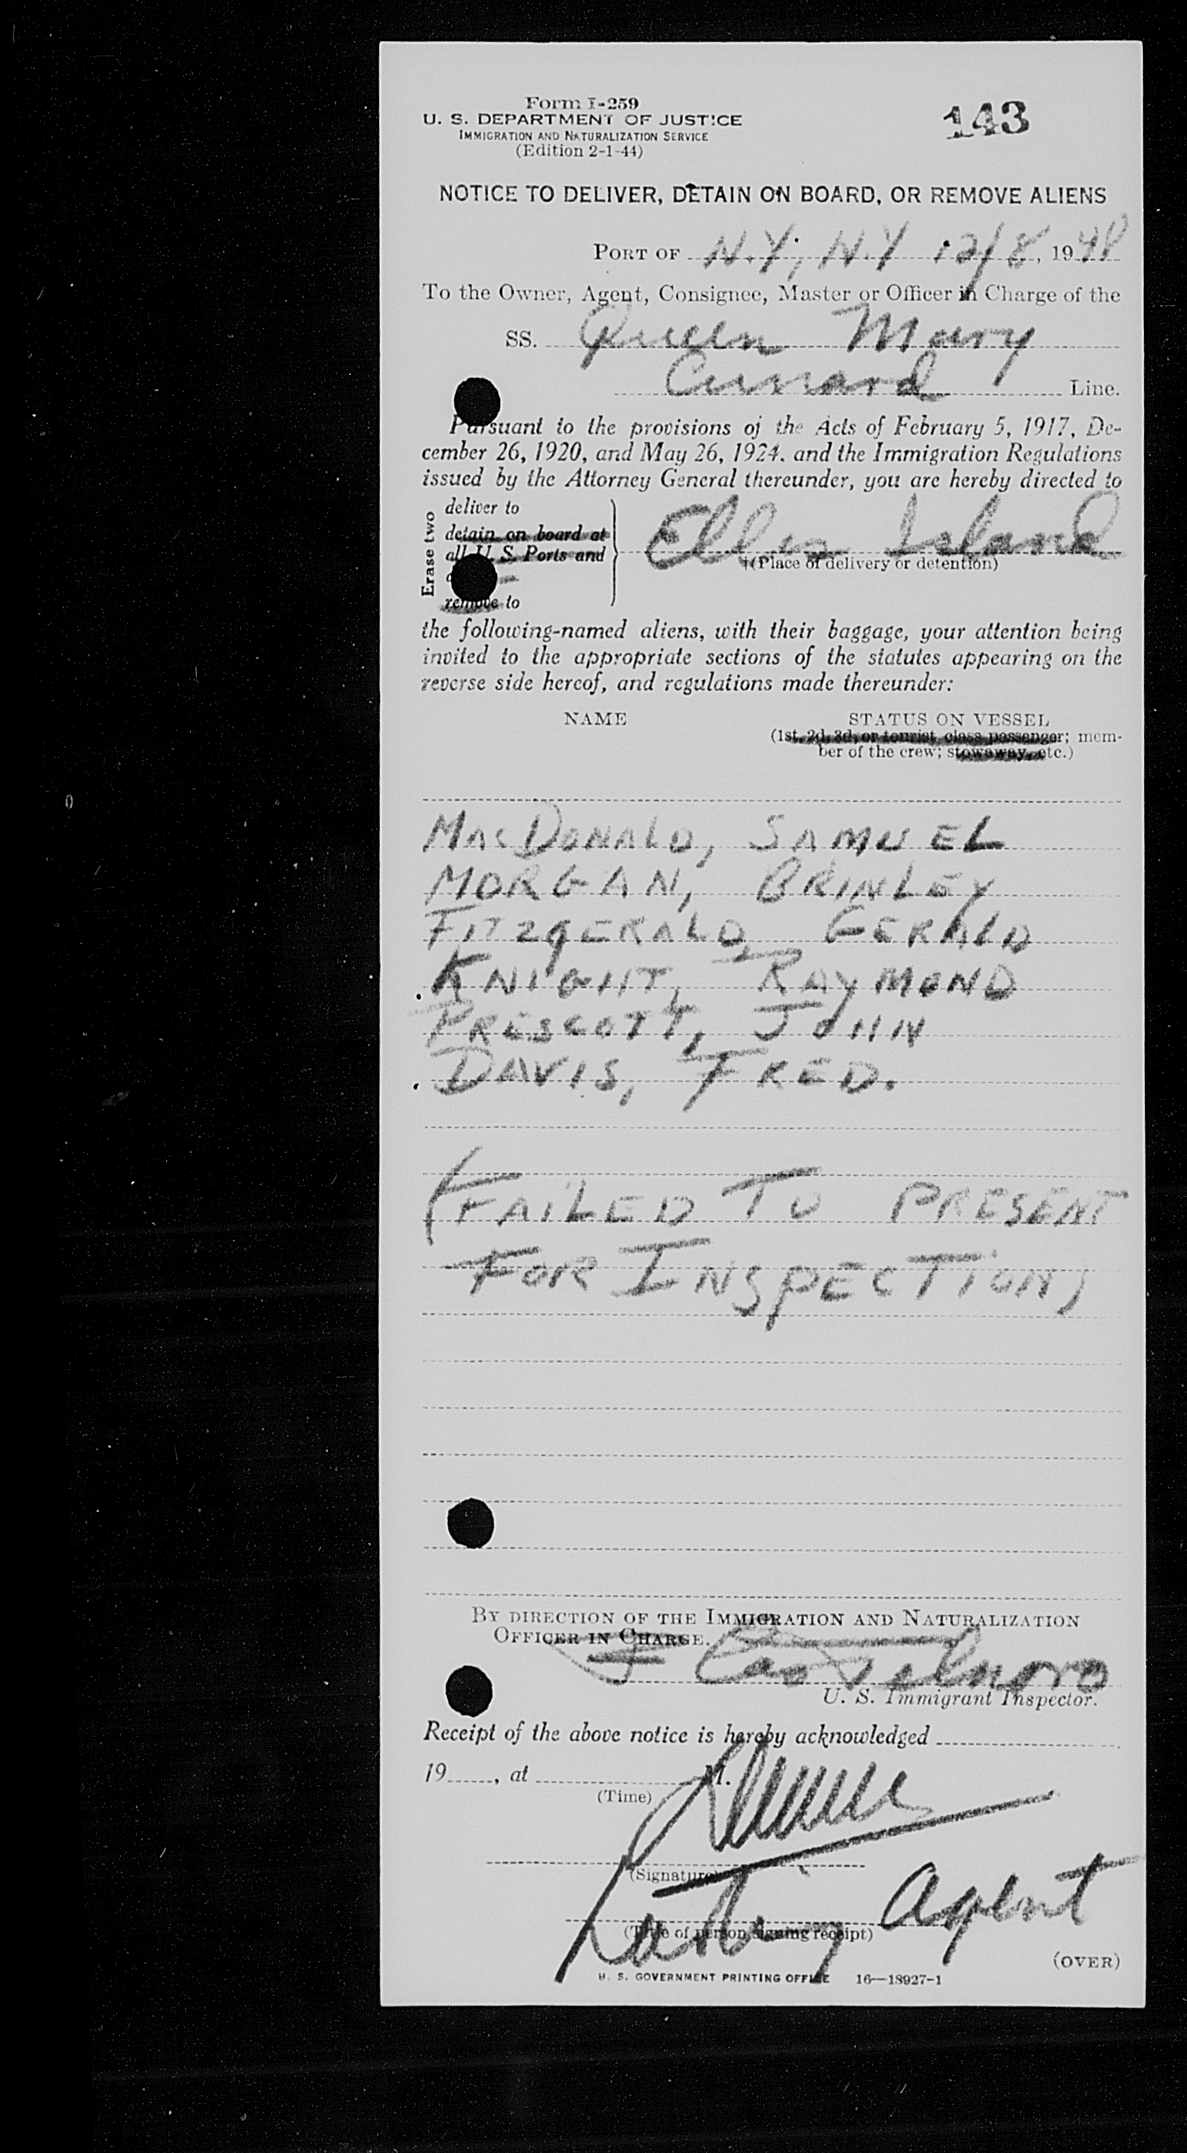 Form I-259
U. S. DEPARTMENT OF JUSTICE
IMMIGRATION AND NATURALIZATION SERVICE
(Edition 2-1-44)
143
NOTICE TO DELIVER, DETAIN ON BOARD, OR REMOVE ALIENS
PORT OF N.Y, N.Y 12/8, 1948
To the Owner, Agent, Consignee, Master or Officer in Charge of the
SS. Queen Mary
Cunard Line.
Pursuant to the provisions of the Acts of February 5, 1917, De-
cember 26, 1920, and May 26, 1924, and the Immigration Regulations
issued by the Attorney General thereunder, you are hereby directed to
Erase two
deliver to
detain on board at
all U. S. Ports and
remove to
Ellis Island
(Place of delivery or detention)
the following-named aliens, with their baggage, your attention being
invited to the appropriate sections of the statutes appearing on the
reverse side hereof, and regulations made thereunder:
NAME STATUS ON VESSEL
(1st, 2d, 3d, or tourist class passenger; mem-
ber of the crew; stowaway, etc.)
MACDONALD, SAMUEL
MORGAN, BRINLEY
FITZGERALD, GERALD
KNIGHT, RAYMOND
PRESCOTT, JOHN
DAVIS, FRED.
(FAILED TO PRESENT
FOR INSPECTION)
BY DIRECTION OF THE IMMIGRATION AND NATURALIZATION
OFFICER IN CHARGE.
U. S. Immigrant Inspector.
Receipt of the above notice is hereby acknowledged
19 , at M.
(Time)
(Signature)
Agent
(Title of person signing receipt)
(OVER)
U. S. GOVERNMENT PRINTING OFFICE 16—18927-1